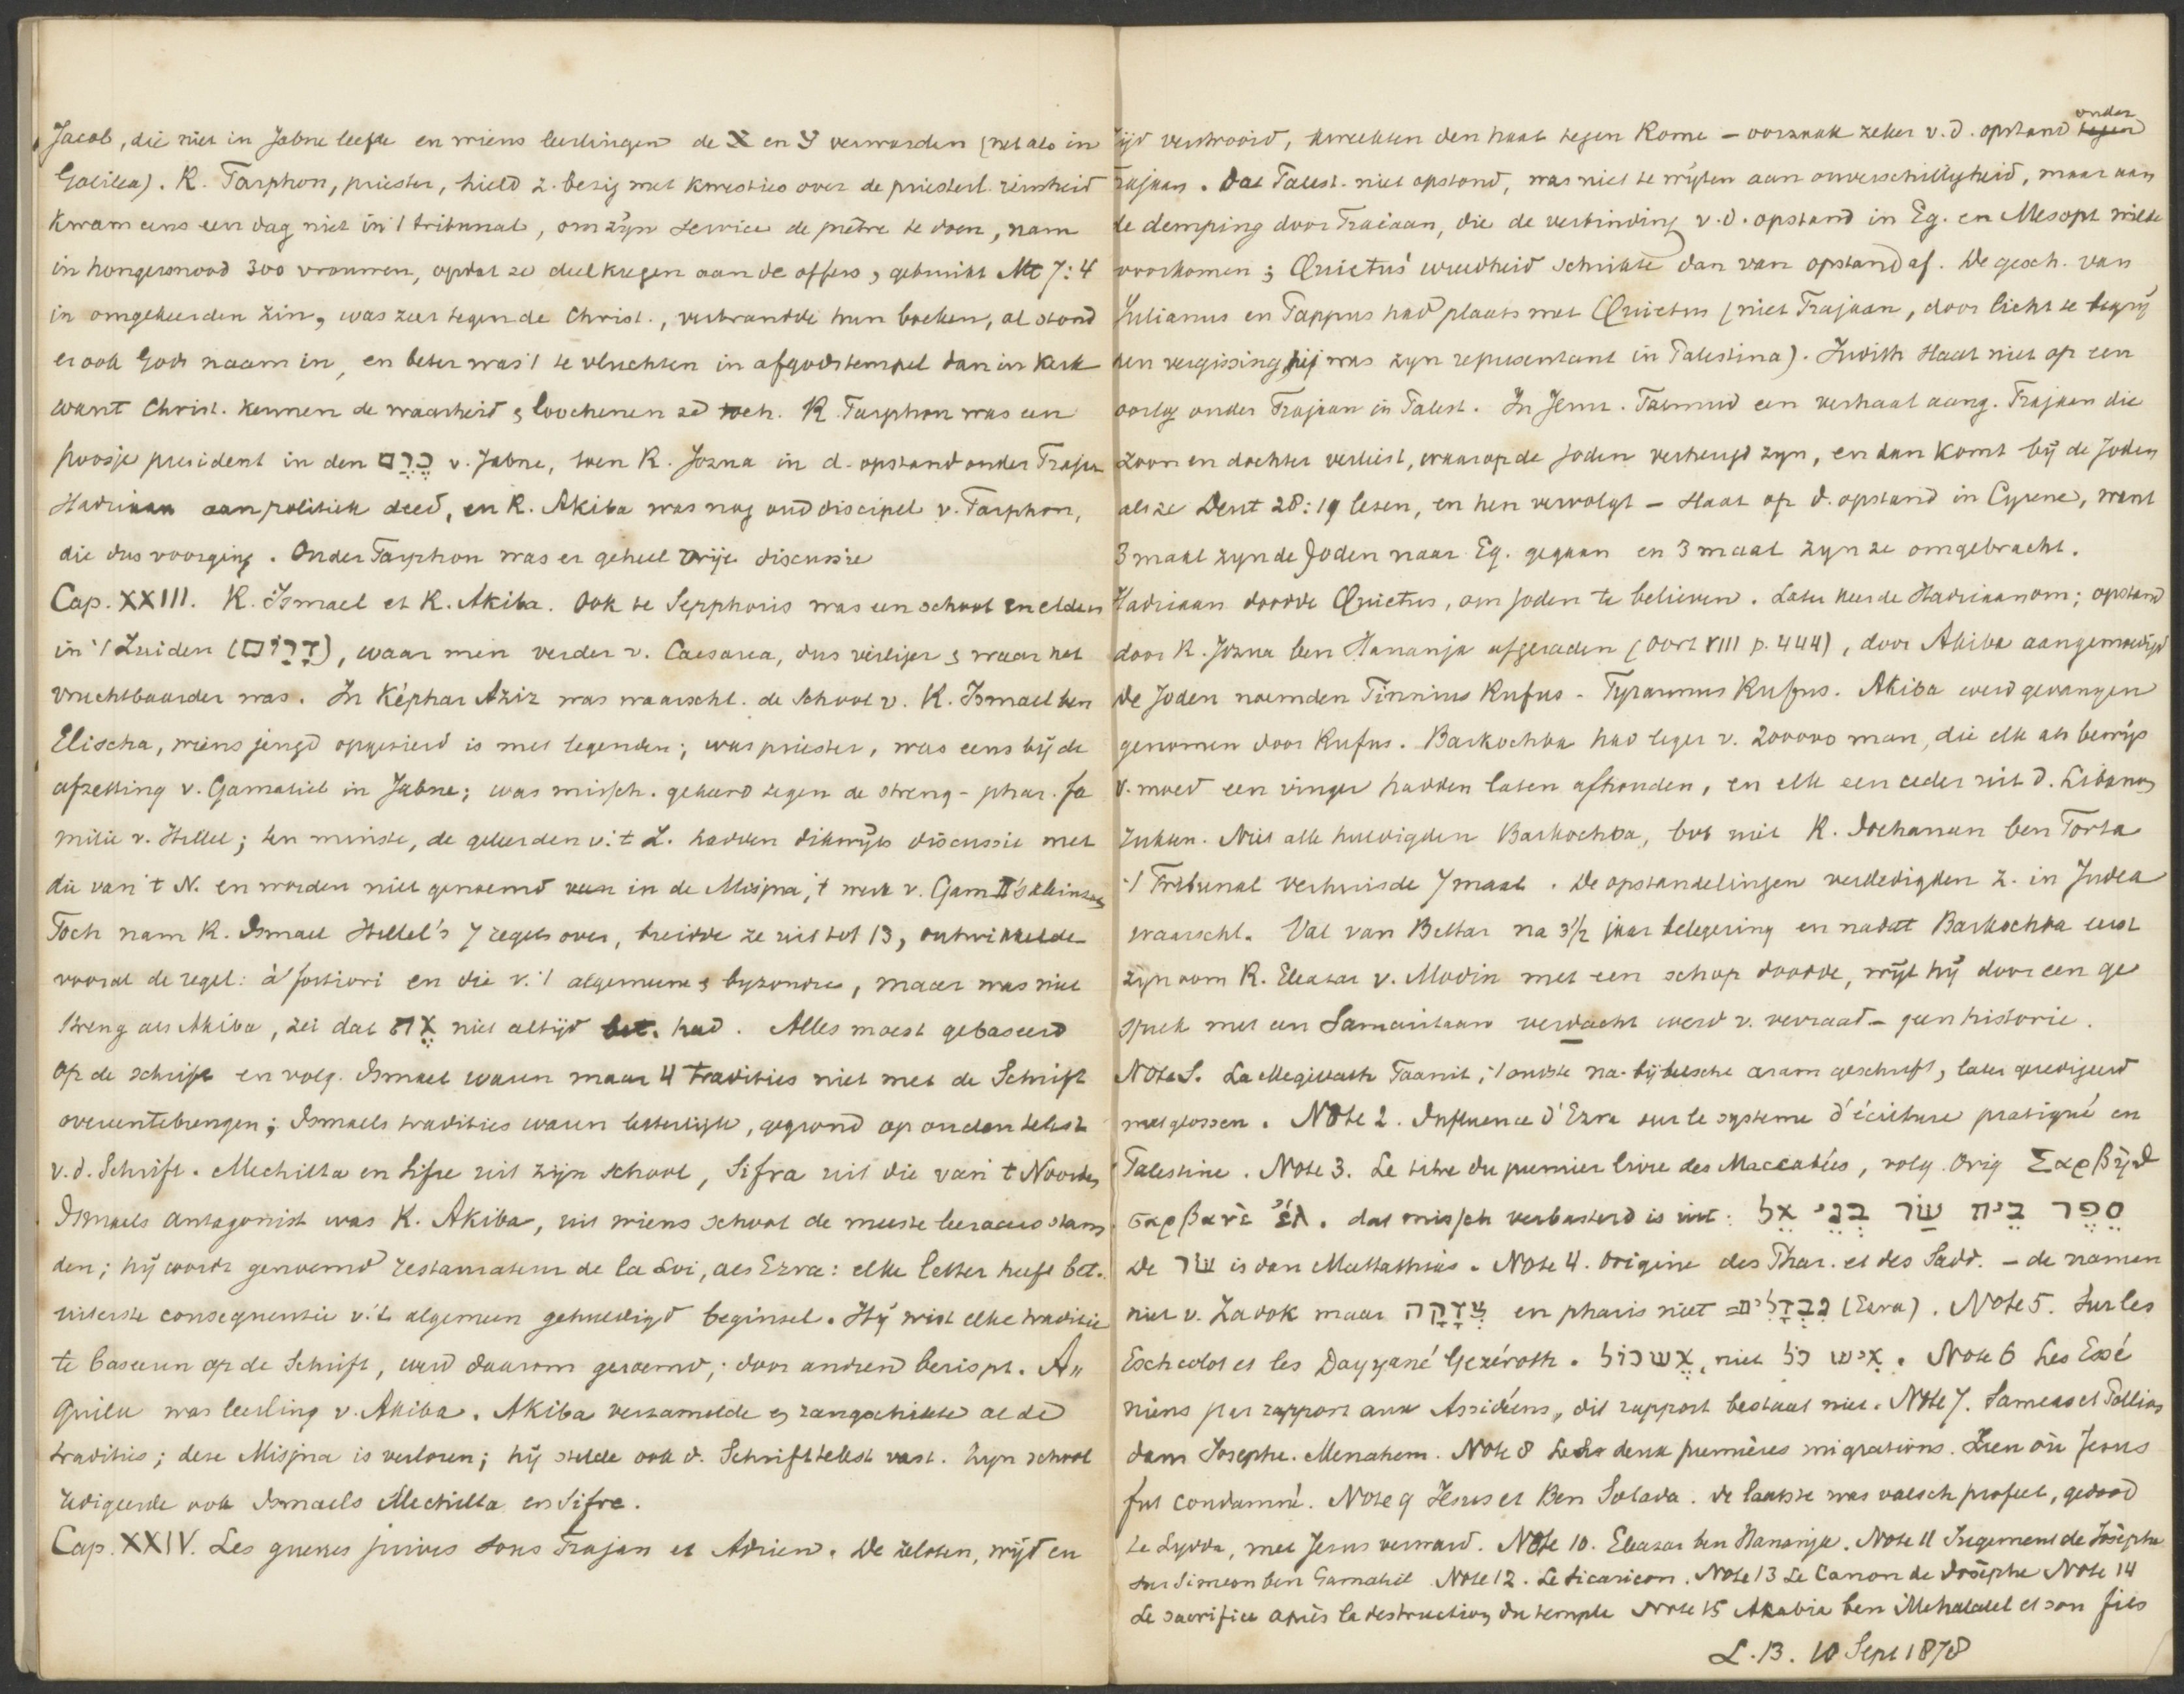 Jacob, die niet in Jabne leefde en wiens leerlingen de א en ע verwarden (net als in
Galilea). R. Tarphon, priester, hield z. bezig met kwesties over de priesterl. reinheid
kwam eens een dag niet in 't tribunal, om zijn service de prêtre te doen, nam
in hongersnood 300 vrouwen, opdat ze deel kregen aan de offers, gebruikt Mt 7:4
in omgekeerden zin, was zeer tegen de Christ., verbrandde hun boeken, al stond
er ook Gods naam in, en beter was 't te vluchten in afgodstempel dan in kerk
want Christ. kennen de waarheid & loochenen ze toch. R. Tarphon was een
poosje president in den כֶּרֶם v. Jabne, toen R. Jozua in d. opstand onder Trajan
Hadriaan aan politiek deed, en R. Akiba was nog oud discipel v. Tarphon,
die dus voorging. Onder Tarphon was er geheel vrije discussie
Cap. XXIII. R. Ismael et R. Akiba. Ook te Sepphoris was een school en elders
in 't Zuiden (דָרוֹם), waar men verder v. Caesarea, dus veiliger & waar het
vruchtbaarder was. In Képhar Aziz was waarschl. de school v. R. Ismael ben
Elischa, wiens jeugd opgesierd is met legenden; was priester, was eens bij de
afzetting v. Gamaliel in Jabne; was missch. gekeerd tegen de streng-phar. fa
milie v. Hillel; ten minste, de geleerden v. 't Z. hadden dikwijls discussie met
die van 't N. en worden niet genoemd in de Misjna, 't werk v. Gam II's kleinzoon
Toch nam R. Ismael Hillel's 7 regels over, breidde ze uit tot 13, ontwikkelde
vooral de regel: à fortiori en die v. 't algemeene & byzondre, maar was niet
streng als Akiba, zei dat אֶת niet altijd bet. had. Alles moest gebaseerd
op de schrift en volg. Ismael waren maar 4 tradities niet met de Schrift
overeentebrengen; Ismaels tradities waren letterlijk, gegrond op ouden tekst
v. d. Schrift. Mechilta en Sifre uit zijn school, Sifra uit die van 't Noorden
Ismaels antagonist was R. Akiba, uit wiens school de meeste leeraars stam
den; hij wordt genoemd restaurateur de la Loi, als Ezra: elke letter heeft bet.
uiterste consequentie v. 't algemeen gehuldigd beginsel. Hij wist elke traditie
te baseeren op de Schrift, werd daarom geroemd; door andren berispt. A„
quila was leerling v. Akiba. Akiba verzamelde & rangschikte al de
tradities; deze Misjna is verloren; hij stelde ook d. Schrifttekst vast. Zijn school
redigeerde ook Ismaels Mechilta en Sifre.
Cap. XXIV. Les guerres juives sous Trajan et Adrien. De zeloten, wijd en
zijd verstrooid, kweekten den haat tegen Rome – oorzaak zeker v. d. opstand tegen onder
Trajaan. Dat Palest. niet opstond, was niet te wijten aan onverschilligheid, maar aan
de demping door Traiaan, die de verbinding v. d. opstand in Eg. en Mesopt wilde
voorkomen; Quietus' wreedheid schrikte dan van opstand af. De gesch. van
Julianus en Pappus had plaats met Quietus (niet Trajaan, door licht te begrij
pen vergissing, hij was zijn representant in Palestina). Judith slaat niet op een
oorlog onder Trajaan in Palest. In Jerus. Talmud een verhaal aang. Trajaan die
zoon en dochter verliest, waarop de Joden verheugd zyn, en dan komt bij de Joden
als ze Deut 28:19 lezen, en hen vervolgt – slaat op d. opstand in Cyrene, want
3 maal zijn de Joden naar Eg. gegaan en 3 maal zyn ze omgebracht.
Hadriaan doodde Quietus, om Joden te believen. Later keerde Hadriaan om; opstand
door R. Jozua ben Hananja afgeraden (Oort VIII p. 444), door Akiba aangemoedigd
De Joden noemden Tinnius Rufus – Tyrannus Rufus. Akiba werd gevangen
genomen door Rufus. Barkochba had leger v. 200000 man, die elk als bewijs
v. moed een vinger hadden laten afhouden, en elk een ceder uit d. Libanon
rukken. Niet alle huldigden Barkochba, bvb niet R. Jochanan ben Torta
't Tribunal verhuisde 7 maal. De opstandelingen verdedigden z. in Judea
waarschl. Val van Bettar na 3½ jaar belegering en nadat Barkochba eerst
zijn oom R. Eleazar v. Modin met een schop doodde, wijl hij door een ge
sprek met een Samaritaan verdacht werd v. verraad – geen historie.
Note 1. La Megillath Taanit, 't oudste na-bijbelsche aram geschrift, later geredigeerd
met glossen. Note 2. Influence d'Ezra sur le systeme d'écriture pratiqué en
Palestine. Note 3. Le titre du premier livre des Maccabées, volg. Orig Σαρβὴθ
σαρβανὲ ἔλ. dat missch verbasterd is uit: סֵפֶר בֵּית שַׂר בְּנֵי אֵל
De שׂר is dan Mattathias. Note 4. Origine des Phar. et des Sadd. – de namen
niet v. Zadok maar צְדָקָה en pharis niet נִבְדָּלִים= (Ezra). Note 5. Sur les
Escheolot et les Dayyané Gezéroth. אֶשְׁכּוֹל, niet אִישׁ כֹּל. Note 6 Les Essé
niens par rapport aux Assidéens, dit rapport bestaat niet. Note 7. Sameas et Pollion
dans Josephe. Menahem. Note 8 Les deux premières migrations. Lieu où Jesus
fut condamné. Note 9 Jesus et Ben Sotada. De laatste was valsch profeet, gedood
te Lydda, met Jesus verward. Note 10. Eleazar ben Hananja. Note 11 Jugement de Josèphe
sur Simeon ben Gamaliel Note 12. Le sicaricon. Note 13 Le Canon de Josèphe Note 14
Le sacrifice après la destruction du temple Note 15 Akabia ben Mehalalel et son fils
L. B. 10 Sept 1878